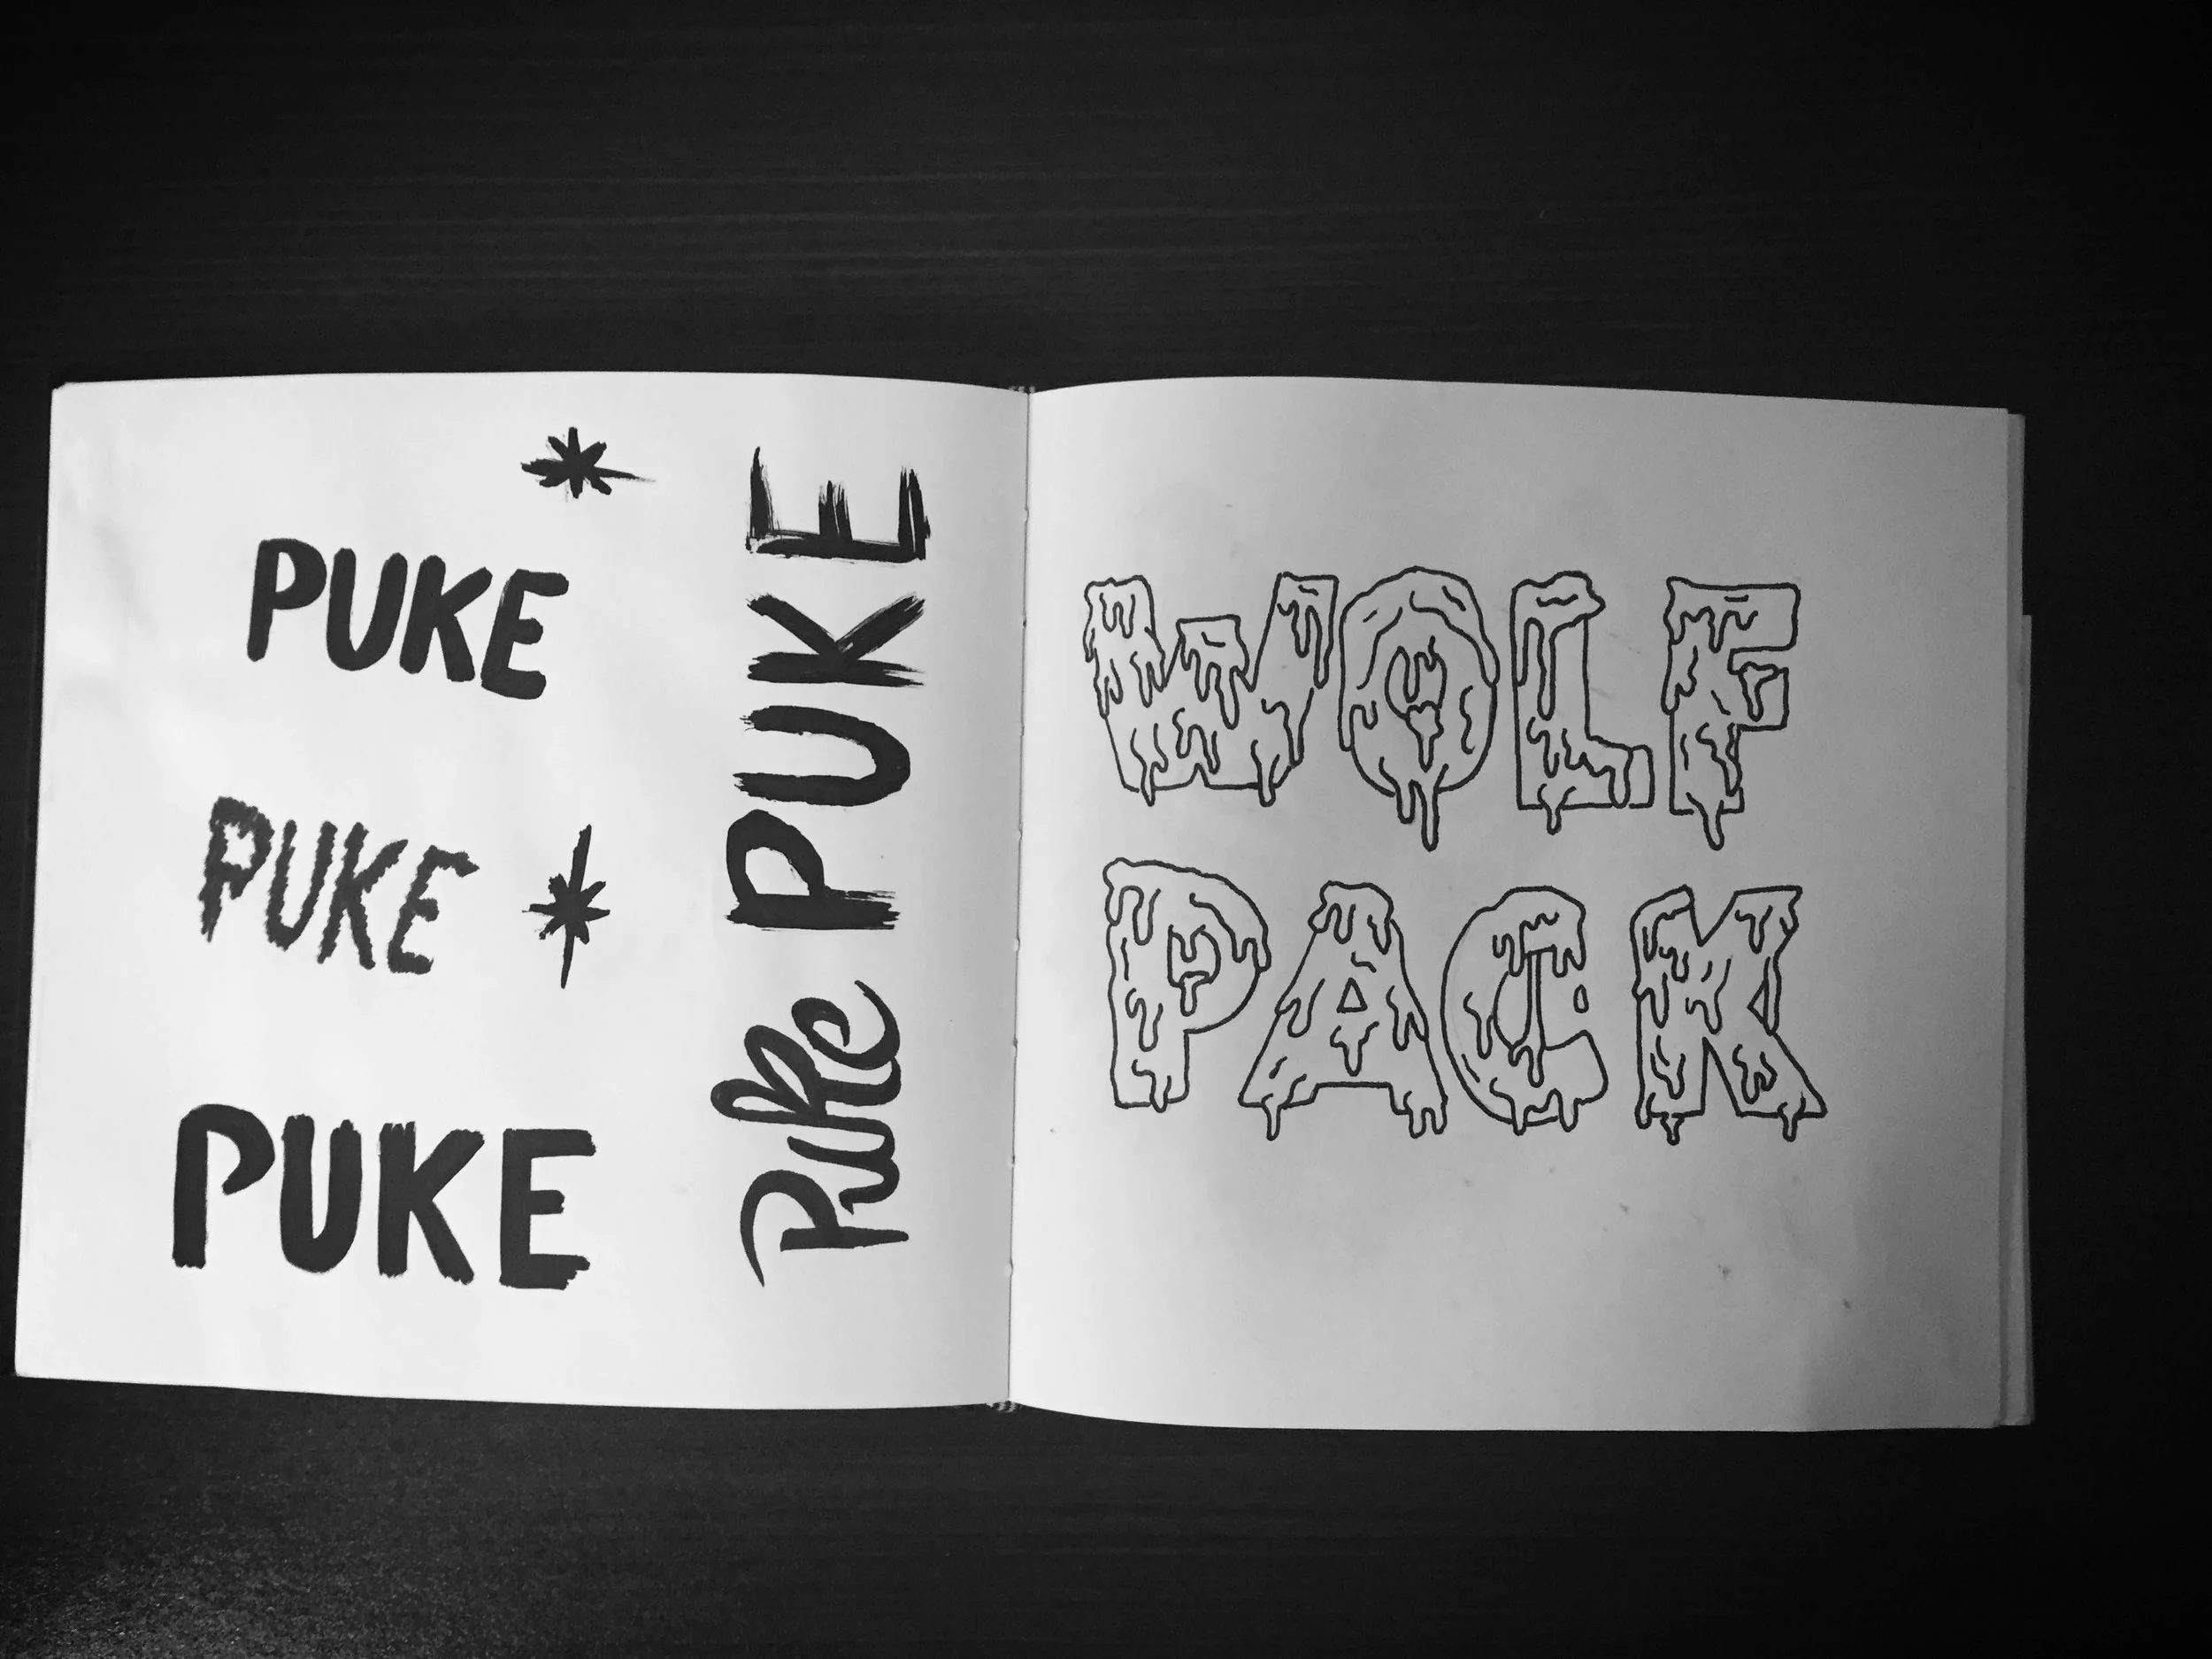 PUKE
PUKE
PUKE
Puke PUKE
WOLF
PACK